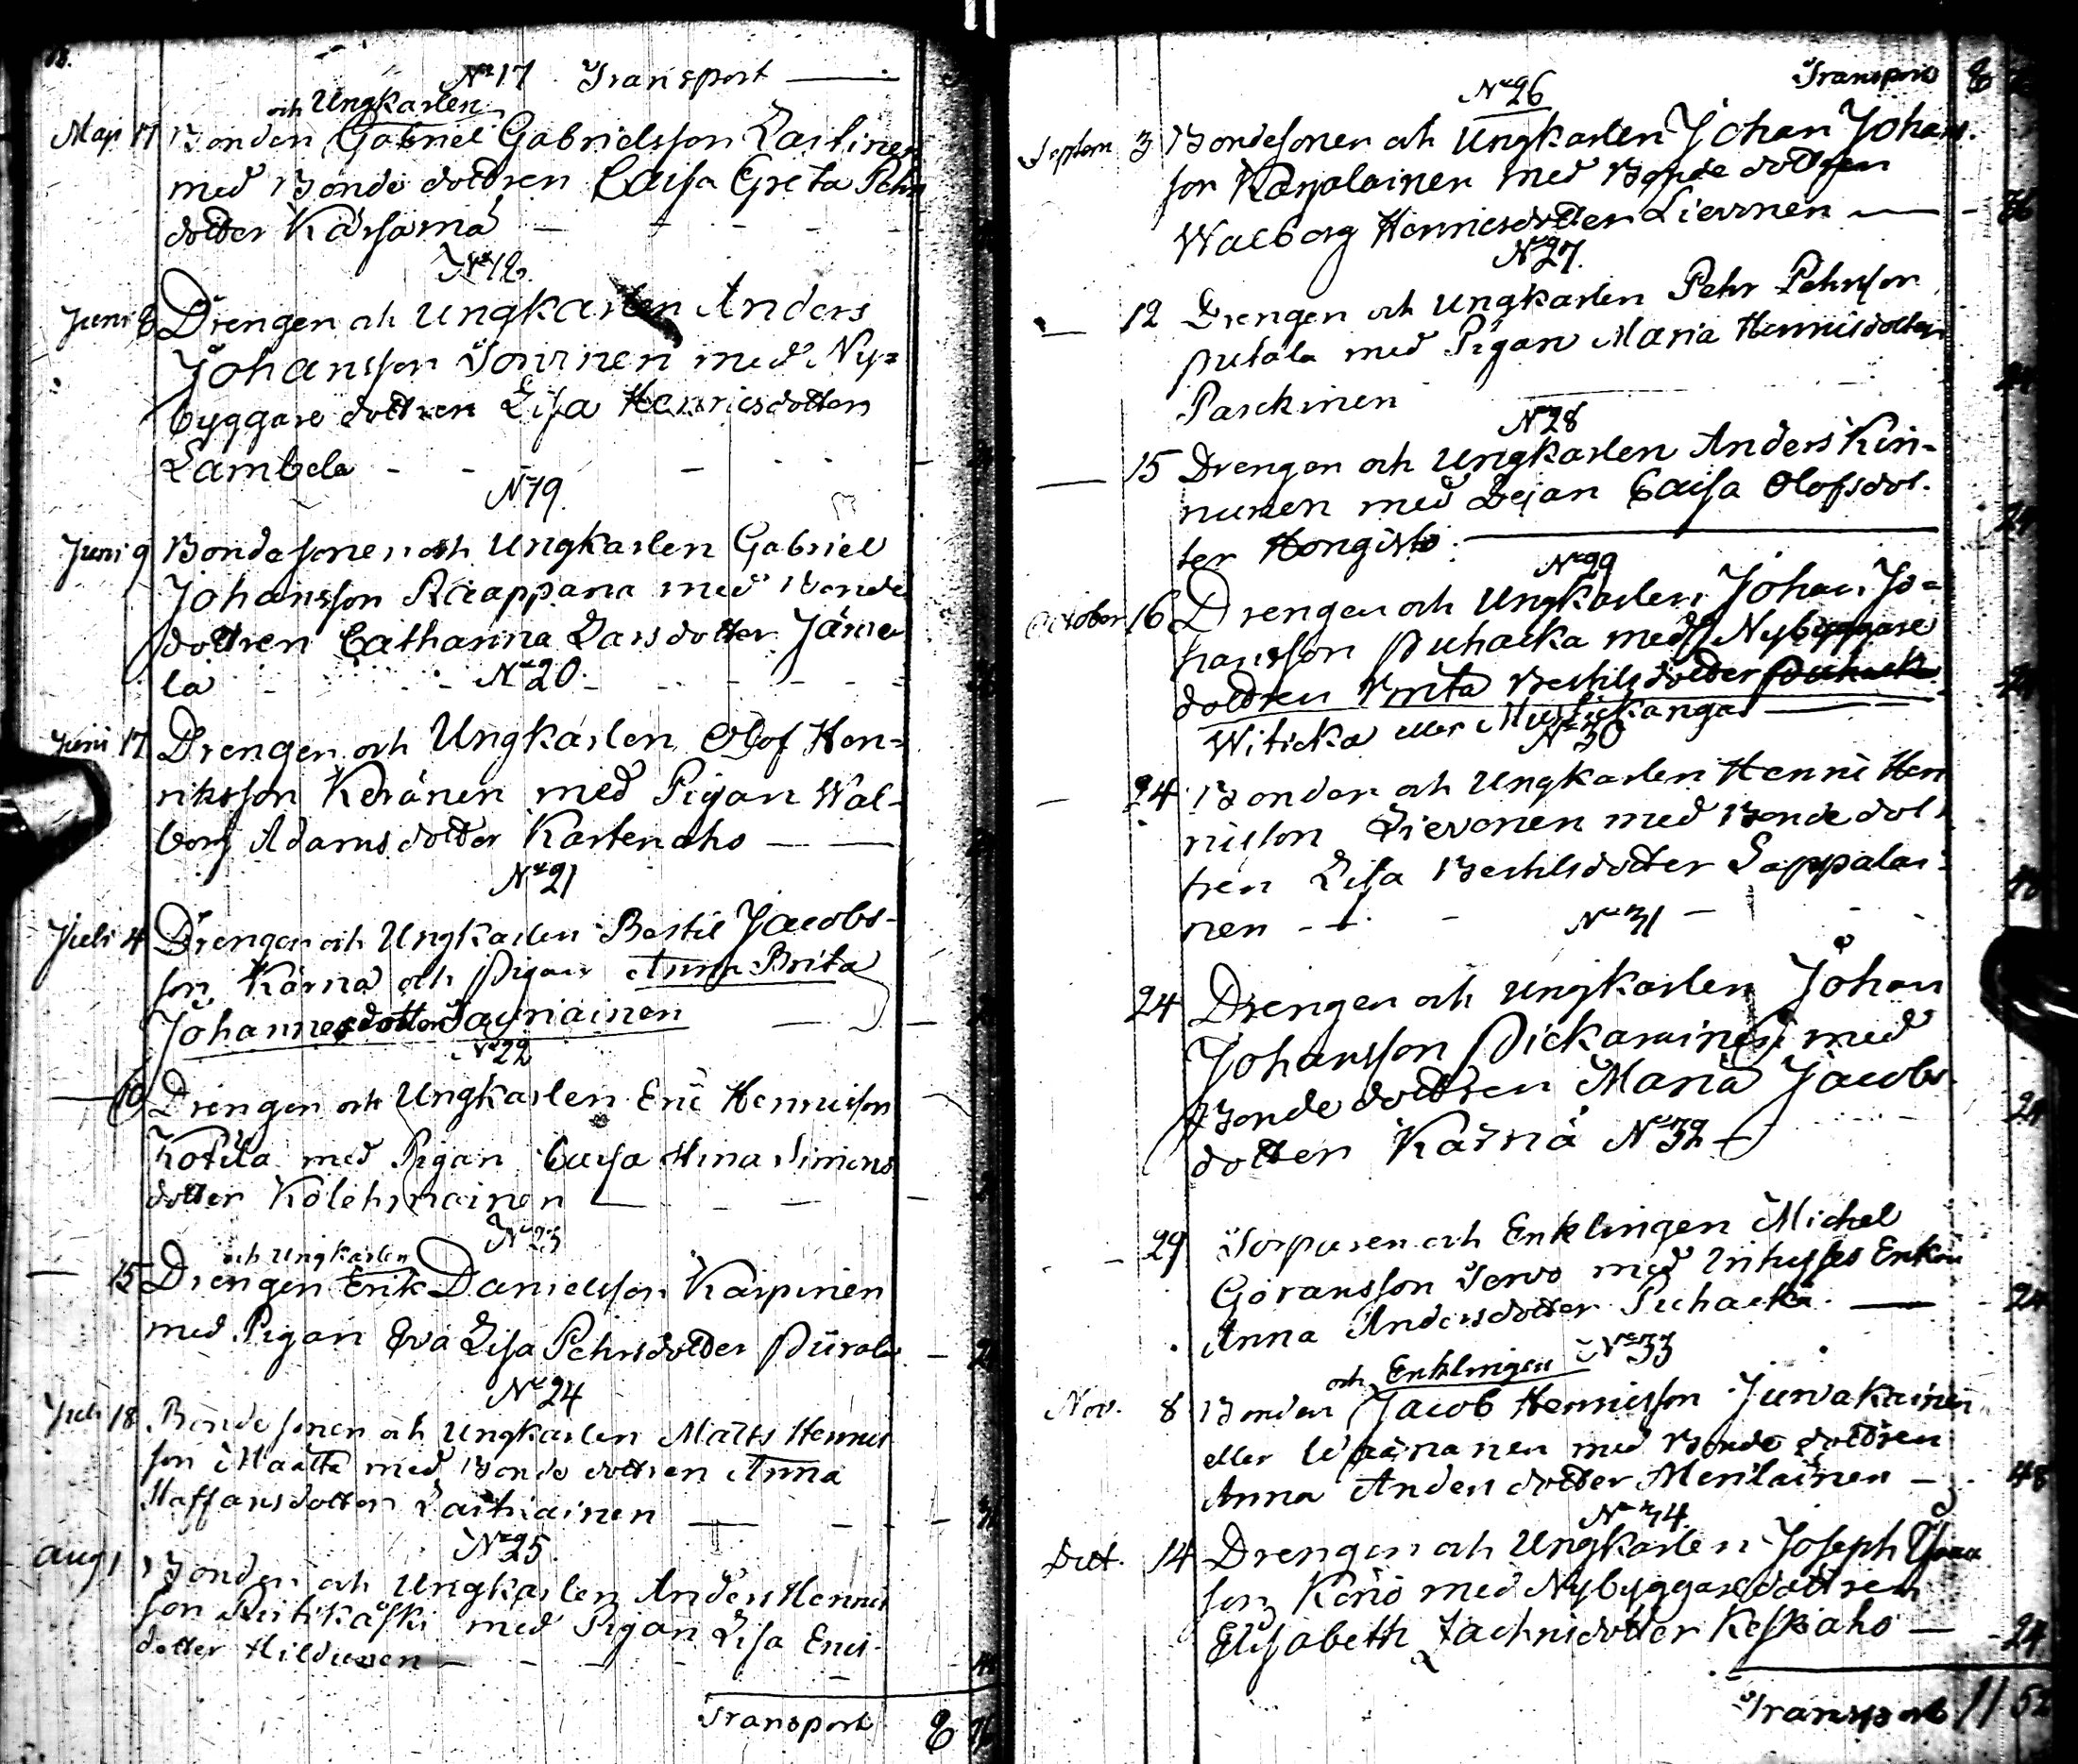 18.
No 17 Transport
och Ungkarlen
Maji 17 Bonden Gabriel Gabrielsson Lartinen
med Bonde dottren Caisa Greta Pehrs
dotter Kärsämä
No 18.
Juni 8 Drengen och Ungkarlen Anders
Johansson Torvinen med Ny=
byggare dottren Lisa Henricsdotter
Lambela
No 19.
Juni 9 Bondesonen och Ungkarlen Gabriel
Johansson Räappana med Bonde
dottren Catharina Larsdotter Järve
lä
No 20.
Juni 17 Drengen och Ungkarlen Olof Hen=
riksson Keränen med Pigan Wal-
borg Adamsdotter Kartenaho
No 21
Juli 4 Drengen och Ungkarlen Bertil Jacobs-
son Kärnä och Pigan Anna Brita
Johannesdotter Tauriainen
No 22
— 10 Drengen och Ungkarlen Eric Henricsson
Kotila med Pigan Caisa Stina Simons
dotter Kolehmainen
No 23
och Ungkarlen
— 15 Drengen Erik Danielsson Karpinen
med Pigan Eva Lisa Pehrsdotter Piirala
No 24
Juli 18 Bondesonen och Ungkarlen Matts Henrics
son Määttä med Bonde dottren Anna
Staffansdotter Lartiainen
No 25.
Aug 1 Bonden och Ungkarlen Anders Henrics
son Ristikaski med Pigan Lisa Erics-
dotter Hildunen
Transport 8
Transport 8
No 26
Septem 3 Bondesonen och Ungkarlen Johan Johans-
son Karjalainen med Bonde dottren
Walborg Henricsdotter Lievonen
No 27.
— 12 Drengen och Ungkarlen Pehr Pehrsson
Putala med Pigan Maria Henricsdotter
Parckinen
No 28
— 15 Drengen och Ungkarlen Anders Kin-
nunen med Pigan Caisa Olofsdot-
ter Hongisto 24
No 29
October 16 Drengen och Ungkarlen Johan Jo=
hansson Puhacka med Nybyggare
dottren Brita Bertilsdotter Puhacka
Witicka eller Mustickangas 24
No 30
— 24 Bonden och Ungkarlen Henric Hen
ricsson Lievonen med Bonde dot
tren Lisa Bertilsdotter Sappalai-
nen
No 31
24 Drengen och Ungkarlen Johan
Johansson Pickarainen med
Bonde dottren Maria Jacobs-
dotter Kärnä 24
No 32
— 29 Torparen och Enklingen Michel
Göransson Tervo med Inhyses Enkan
Anna Andersdotter Puhacka 24
No 33
och Enklingen
Nov. 8 Bonden Jacob Henricsson Juvakainen
eller Wäänänen med Bonde dottren
Anna Anders dotter Meriläinen 48
No 34
Dec. 14 Drengen och Ungkarlen Joseph
son Kenö med Nybyggare dottren
Elisabeth Zachrisdotter Keskiaho 24
Transport 11 52